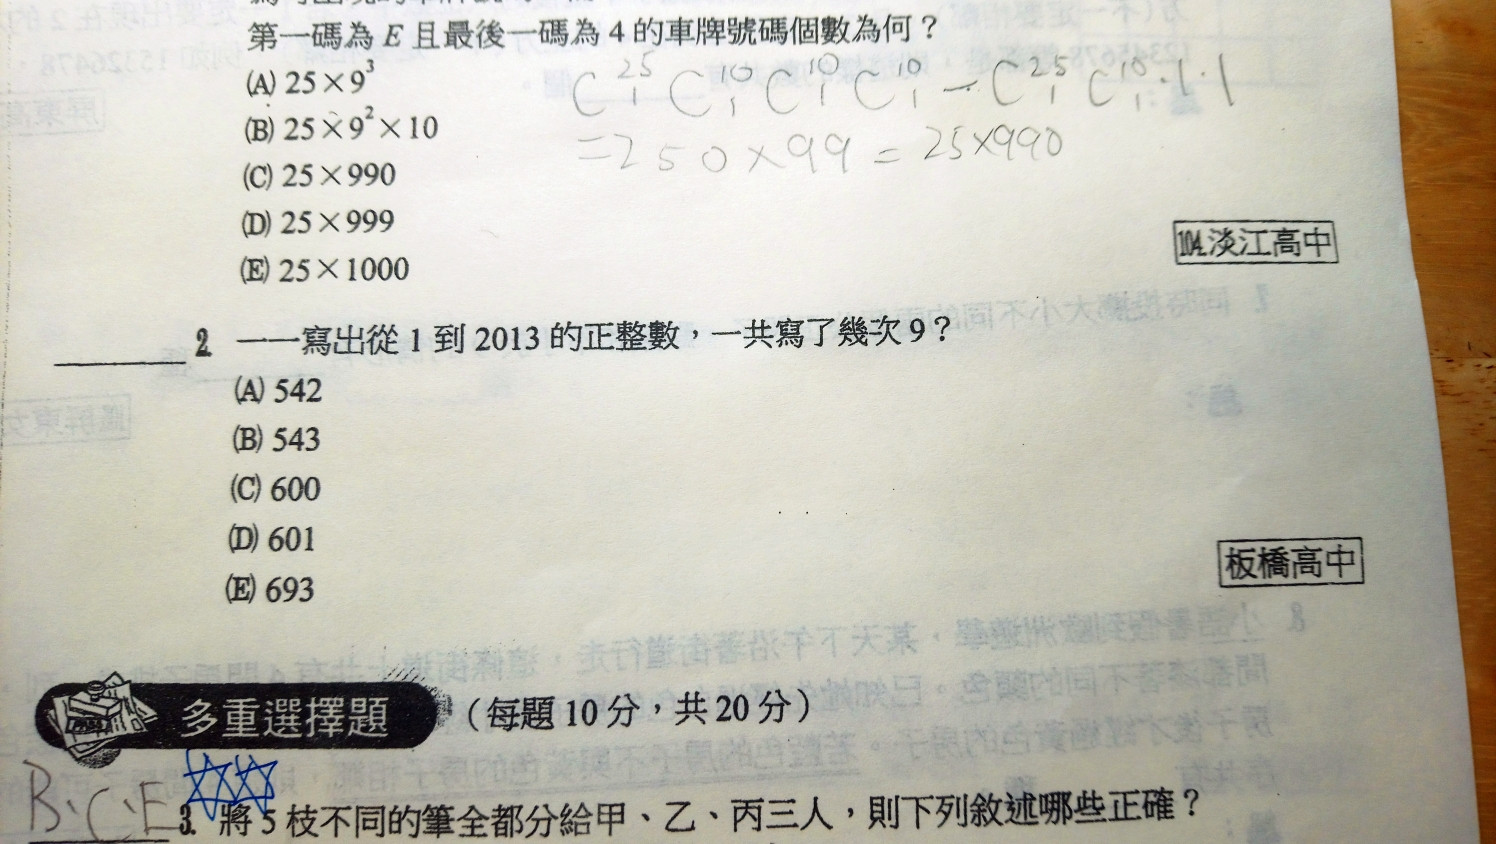 第一碼為 E 且最後一碼為 4 的車牌號碼個數為何？
(A) 25×9³
(B) 25×9²×10
(C) 25×990
(D) 25×999
(E) 25×1000
C²⁵₁ C¹⁰₁ C¹⁰₁ C¹⁰₁ － C²⁵₁ C¹⁰₁·1·1
=250×99 = 25×990
104.淡江高中
2. 一一寫出從 1 到 2013 的正整數，一共寫了幾次 9？
(A) 542
(B) 543
(C) 600
(D) 601
(E) 693
板橋高中
多重選擇題（每題 10 分，共 20 分）
B、C、E 3. 將 5 枝不同的筆全都分給甲、乙、丙三人，則下列敘述哪些正確？